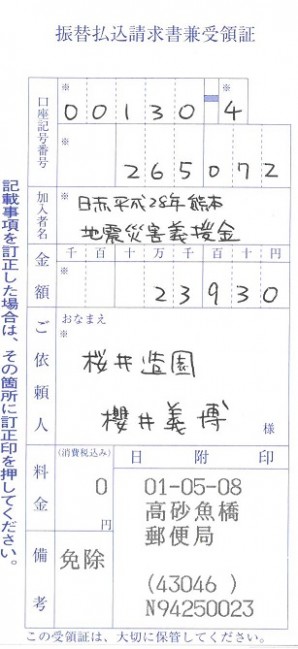 振替払込請求書兼受領証
口座記号番号
※
00130
※
4
※
265072
加入者名
※
日赤平成28年熊本
地震災害義援金
金額
千百十万千百十円
※
23930
ご依頼人
おなまえ
※
桜井造園
櫻井義博
様
料金
(消費税込み)
0
円
備考
免除
日附印
01-05-08
高砂魚橋
郵便局
(43046 )
N94250023
記載事項を訂正した場合は、その箇所に訂正印を押してください。
この受領証は、大切に保管してください。